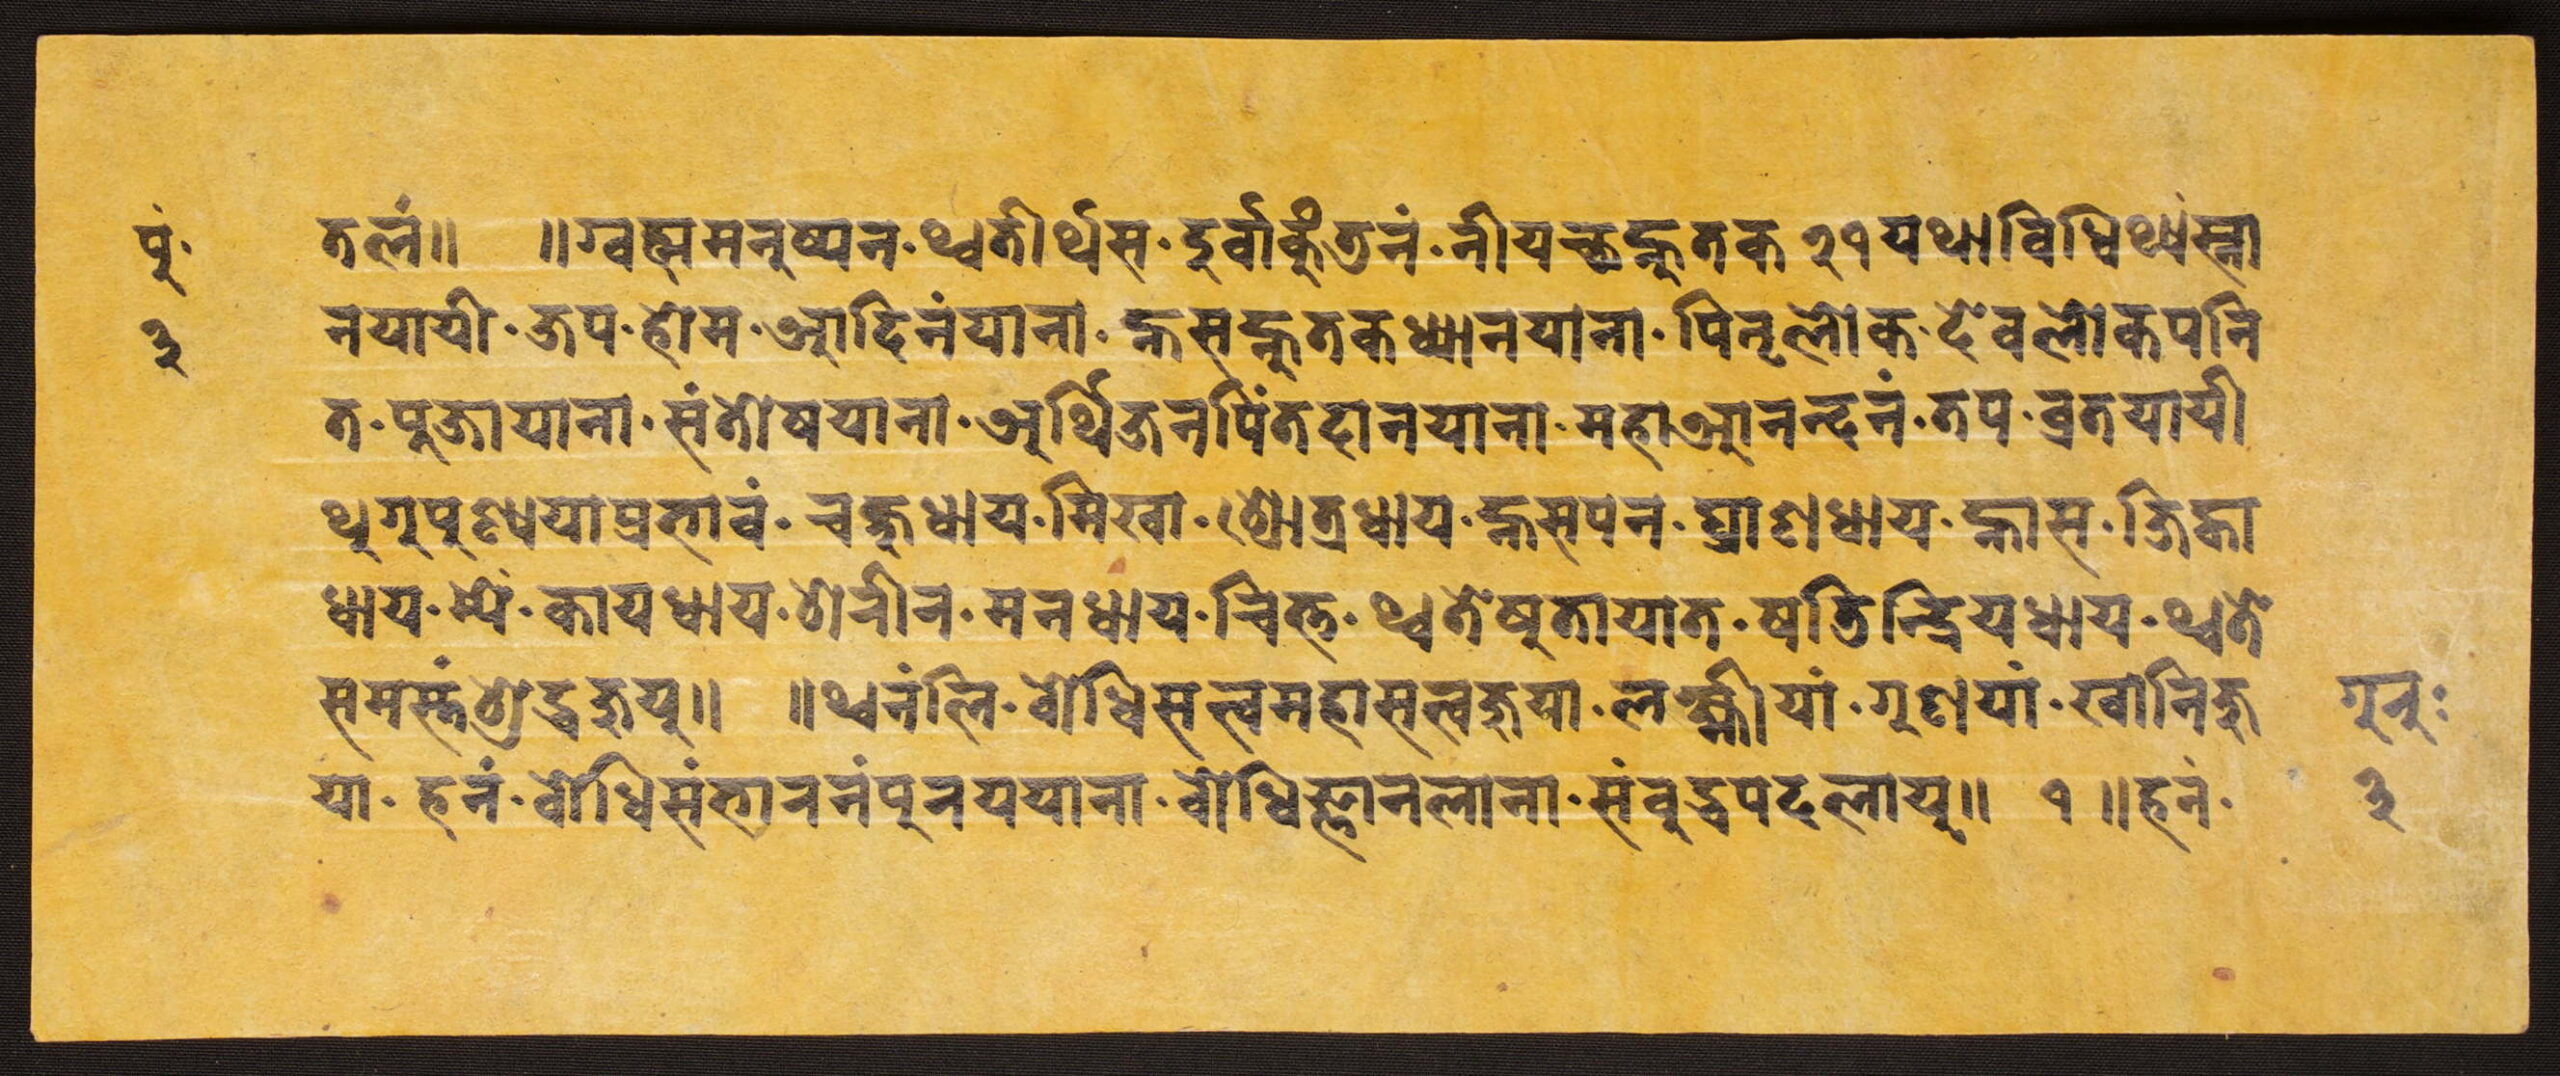 पुं· तलं॥ ॥ग्वह्ममनुष्यन·थ्वतीर्थस·दुर्वाकुंतनं·नीयच्छह्नुतक २१यथाविधिथ्यंस्ना
३ नयायी·जप·होम·आदिनंयाना·ह्नसह्नुतकध्यानयाना·पितृलोक·देवलोकपनि
त·पूजायाना·संतोषयाना·अर्थिजनपिंतदानयाना·महाआनन्दनं·तप·व्रतयायी
थुगुपुण्ययाप्रभावं·चक्षुधाय·मिखा·श्रोत्रधाय·ह्नसपन·घ्राणधाय·ह्नास·जिह्वा
धाय·म्यें·कायधाय·शरीर·मनधाय·चित्त·थ्वतेषुतायात·षतिन्द्रियधाय·थ्वते
समस्तंशुद्धजुयु॥ ॥थ्वनंलि·बोधिसत्त्वमहासत्त्वजुया·लक्ष्मीयां·गुणयां·खानिजु गुरुः
या·हनं·बोधिसंभारनंपुरययाना·बोधिज्ञानलाना·संबुद्धपदलायु॥ १ ॥हनं· ३